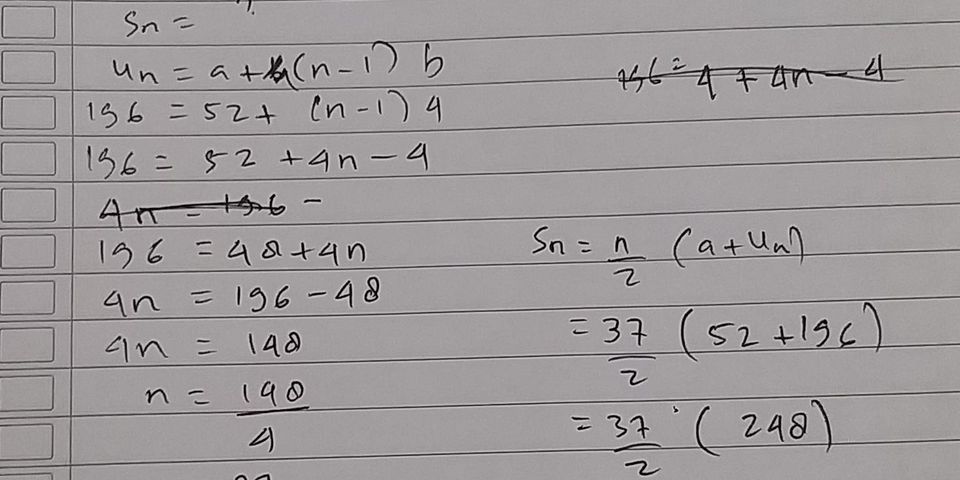 Sn =
Un = a + (n-1) b
196 = 52 + (n-1) 4
196 = 4 + 4n - 4
196 = 52 + 4n - 4
4n = 196 -
196 = 48 + 4n
4n = 196 - 48
4n = 148
n = 148/4
Sn = n/2 (a + Un)
= 37/2 (52 + 196)
= 37/2 (248)